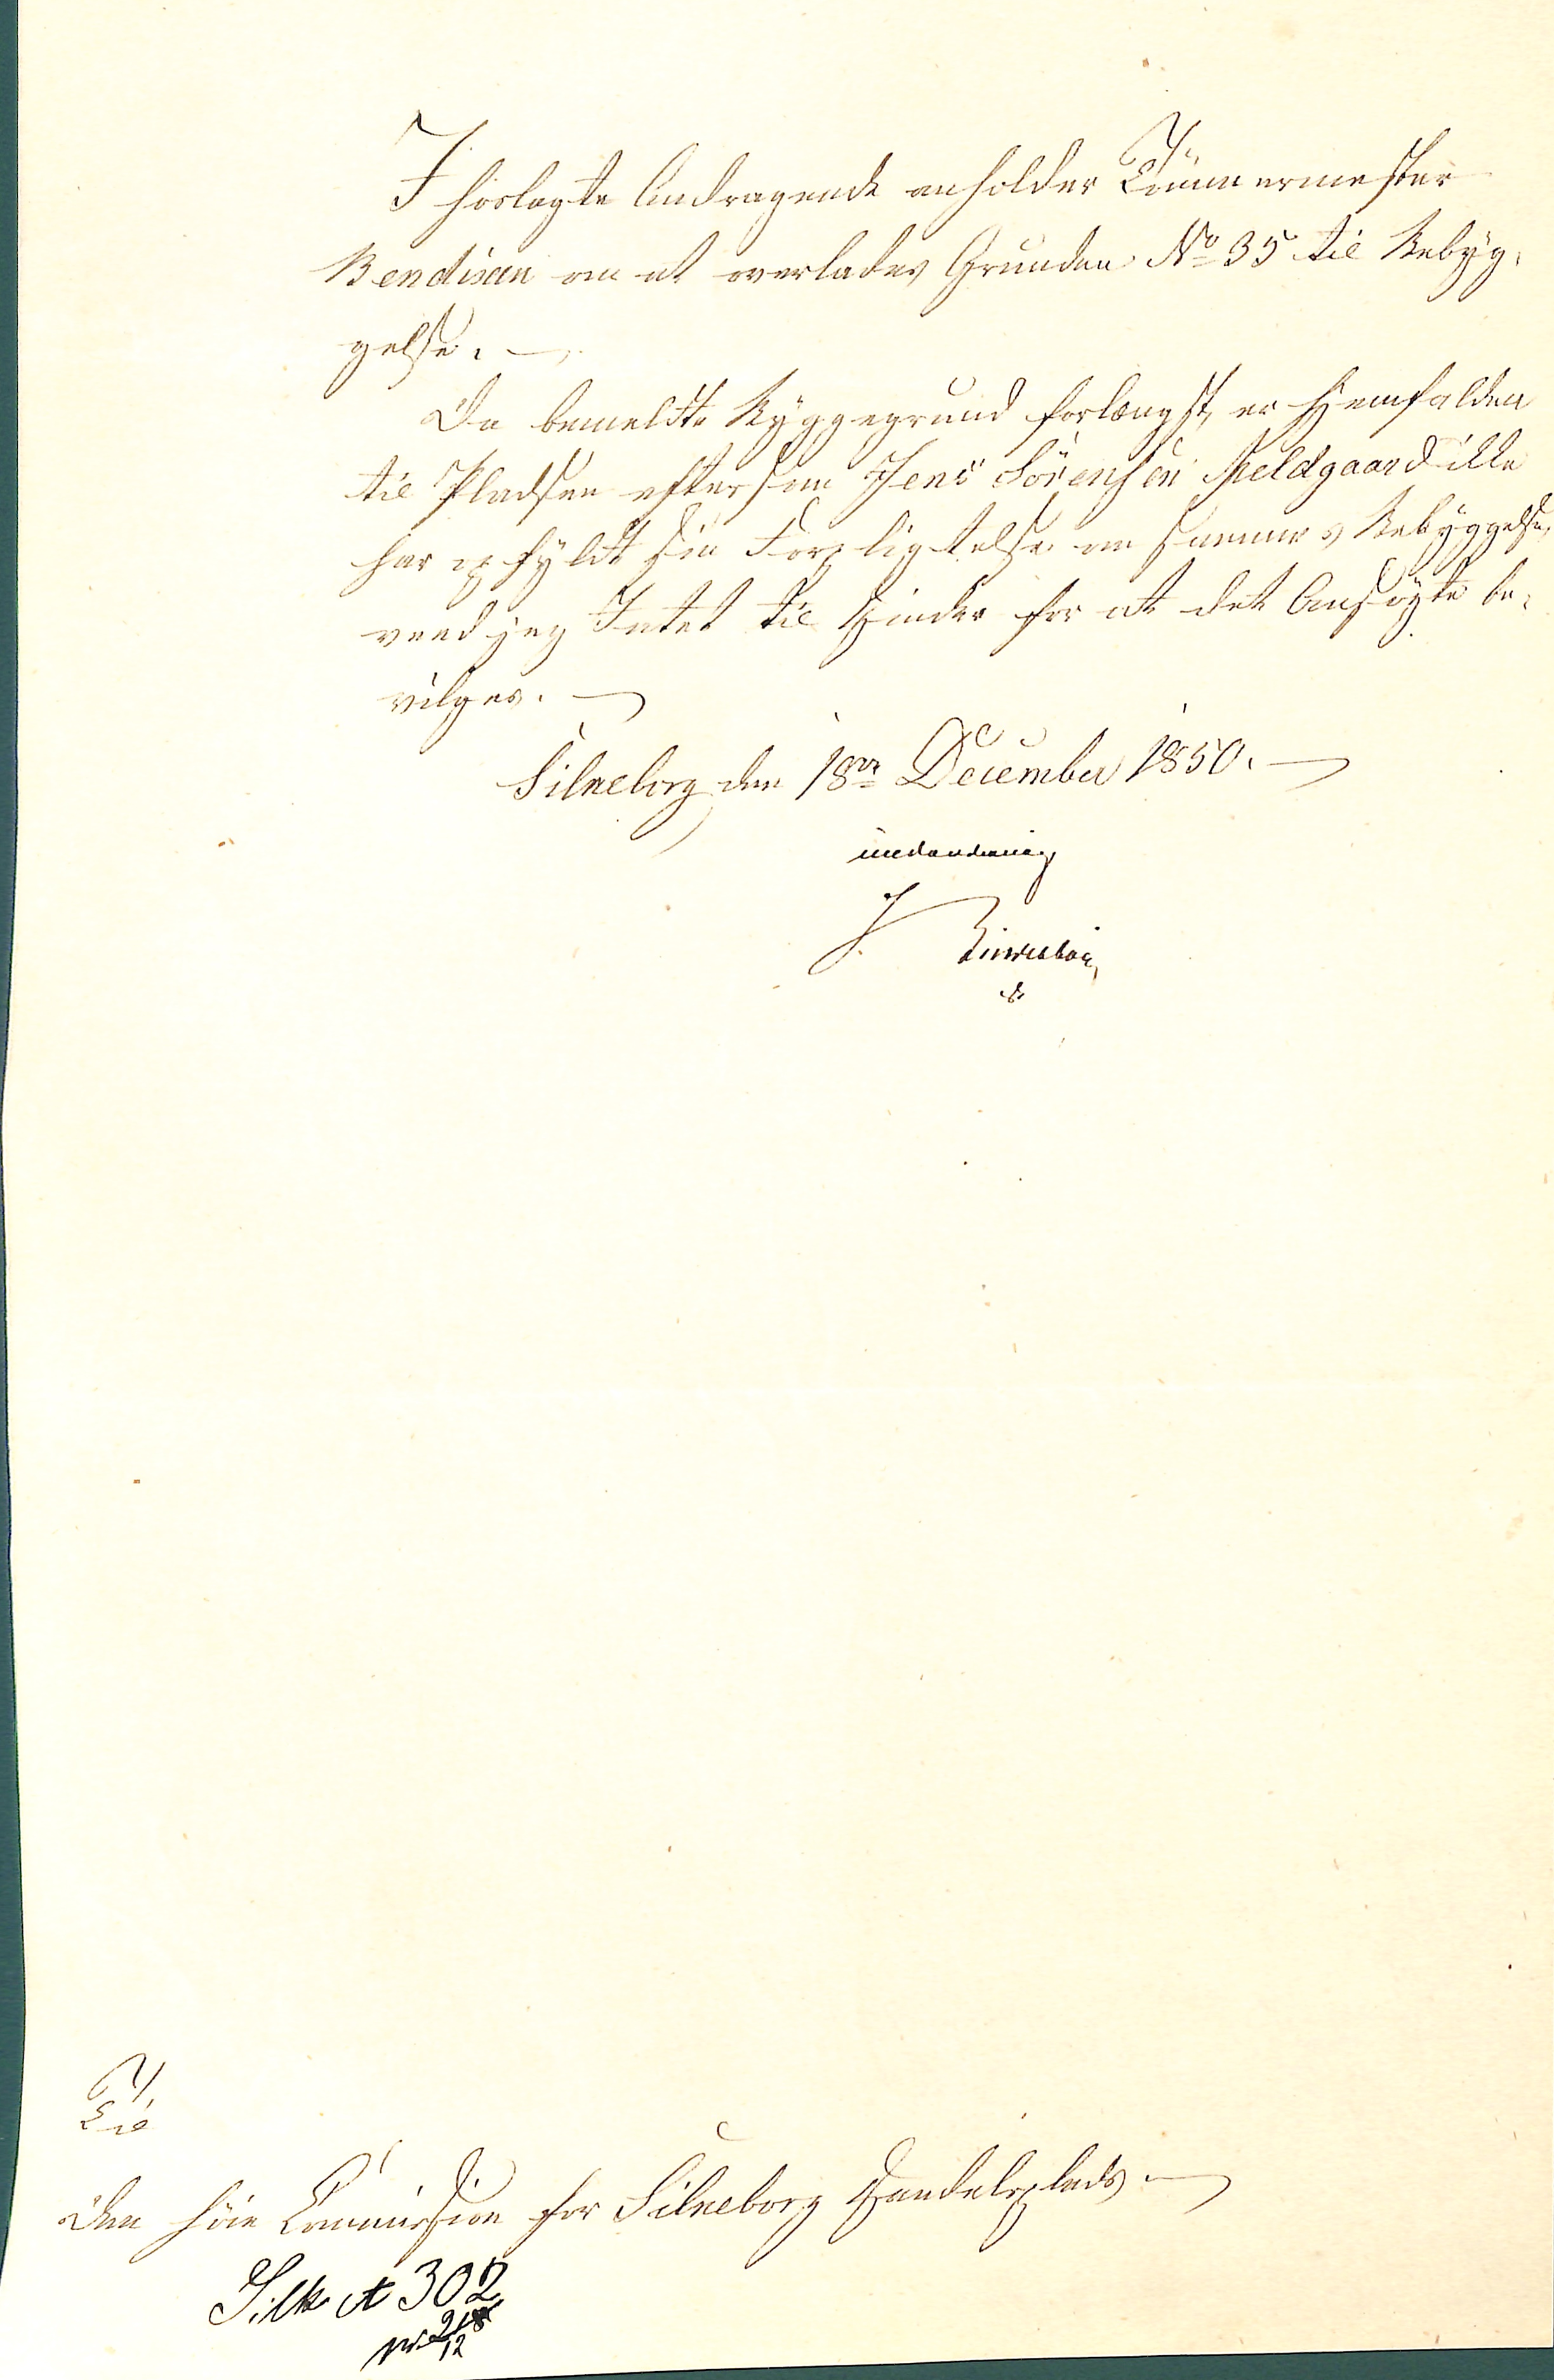 I hoslagte Andragende anholder Tömmermester
Bendixen om at overlades Grunden No 35 til Bebyg-
gelse. —
Da bemeldte Byggegrund forlængst er hjemfalden
til Pladsen eftersom Jens Sörensen Meldgaard ikke
har opfyldt sin Forpligtelse om sammes Bebyggelse,
veed jeg Intet til Hinder for at det Ansøgte be-
vilges. —
Silkeborg den 18de December 1850. —
underdanig
Til
Den höie Commission for Silkeborg Handelsplads. —
Silk A 302